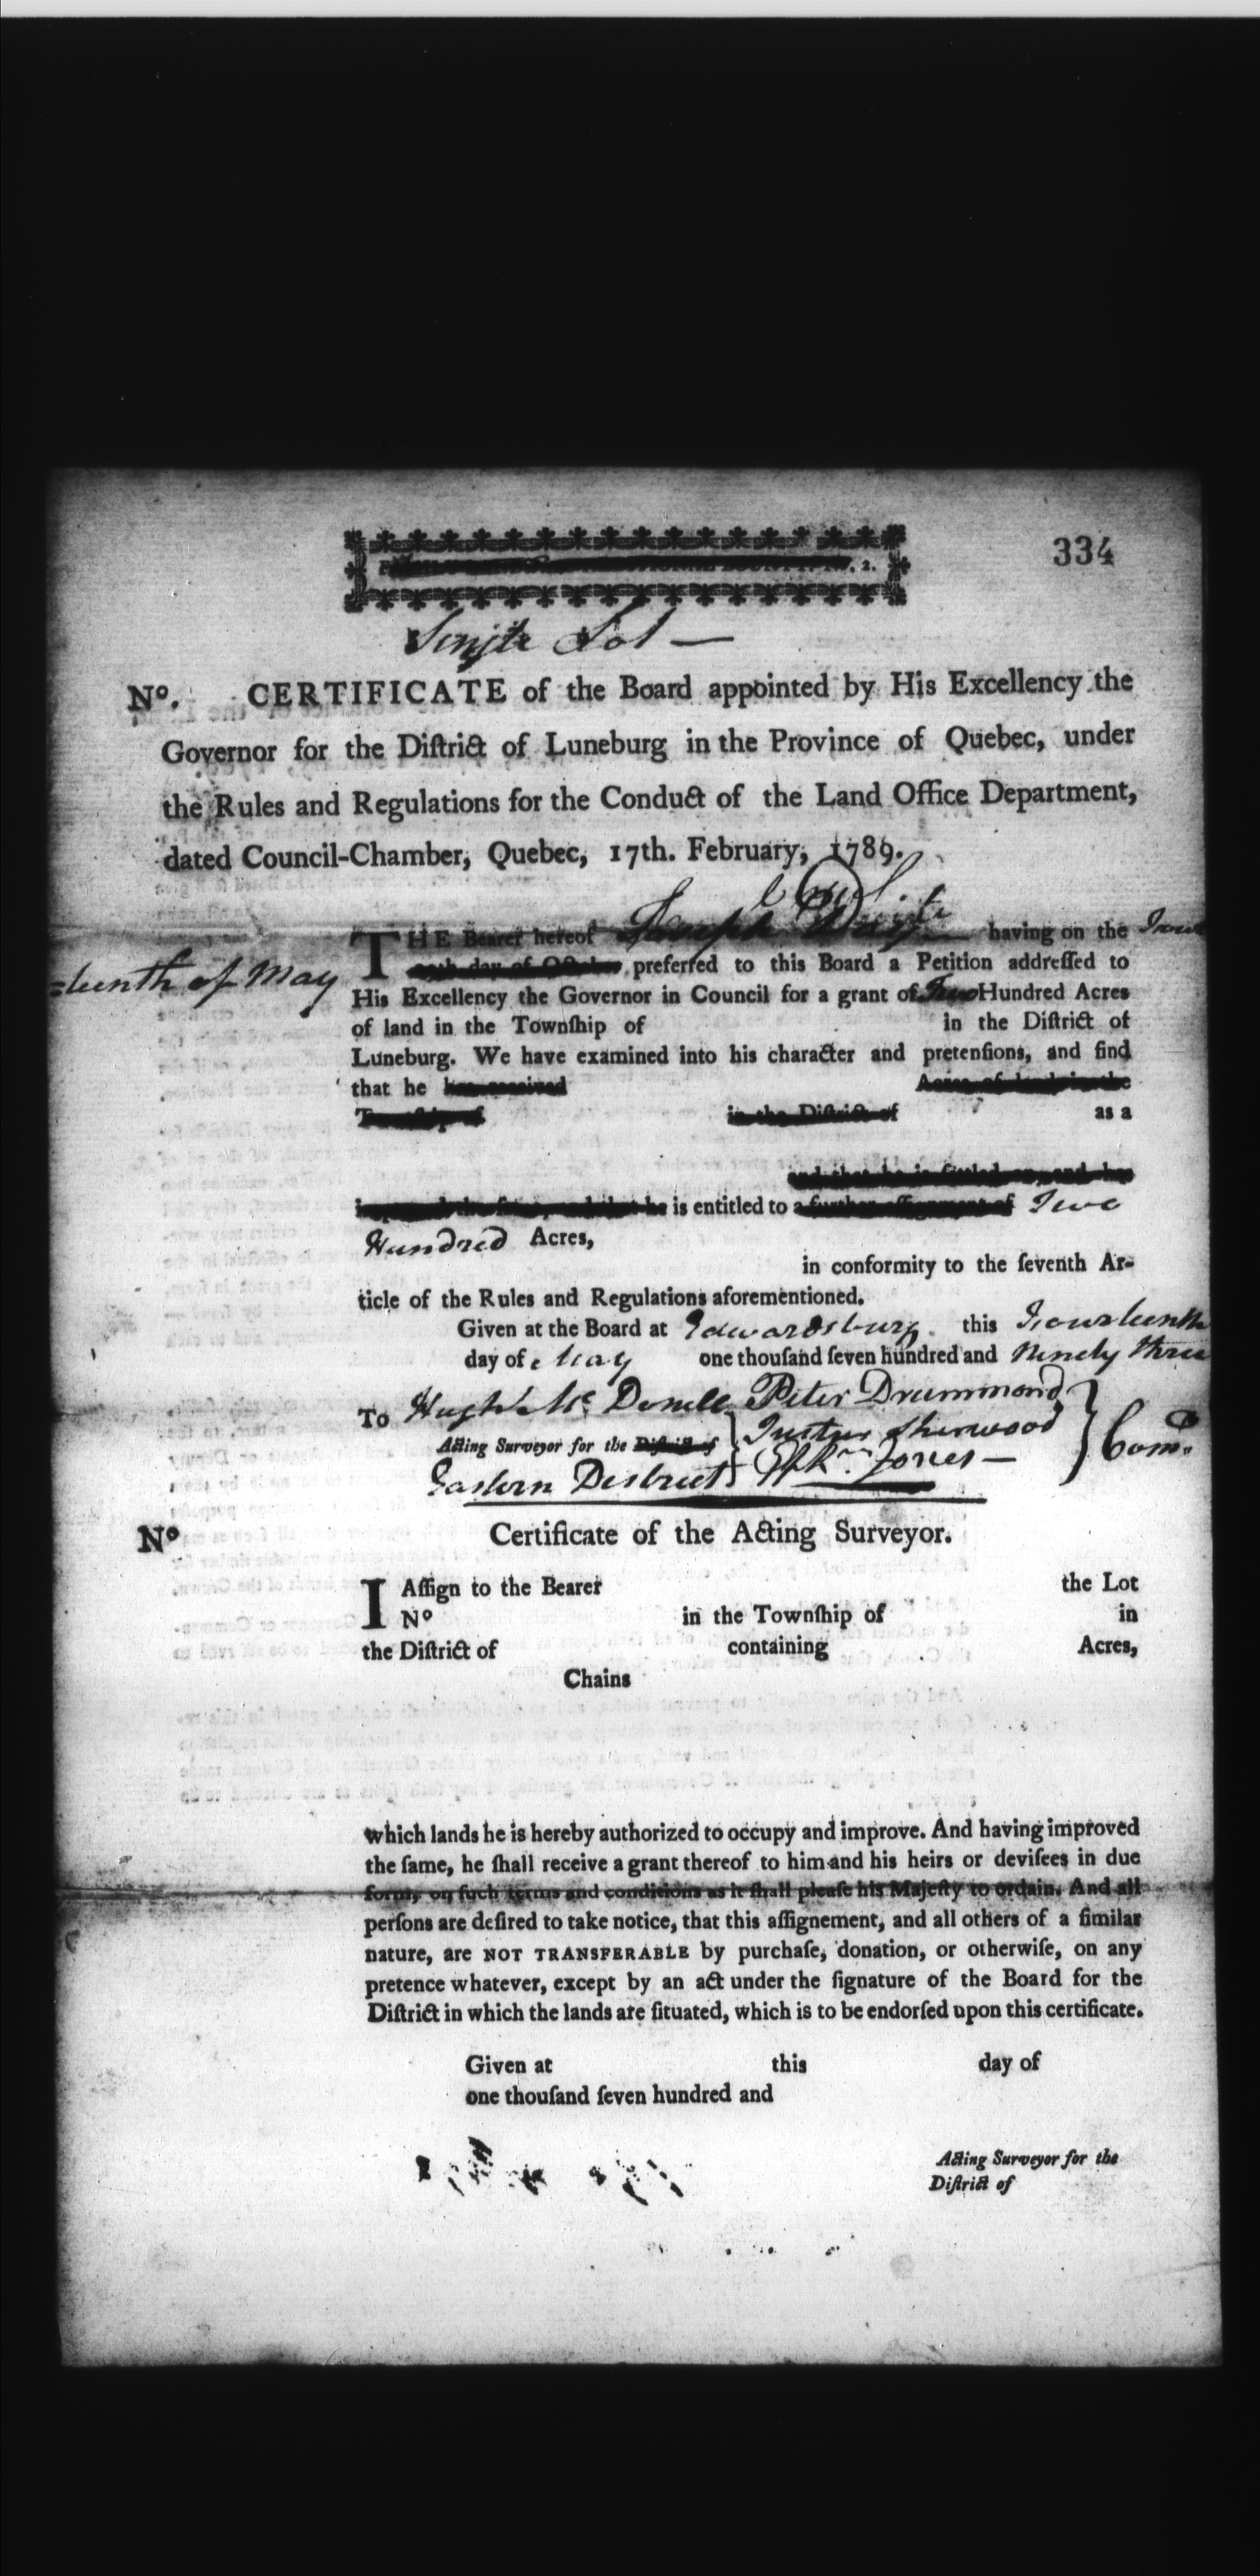 334
, 2.
Single Lot —
Nº. CERTIFICATE of the Board appointed by His Excellency the
Governor for the Diſtrict of Luneburg in the Province of Quebec, under
the Rules and Regulations for the Conduct of the Land Office Department,
dated Council-Chamber, Quebec, 17th. February, 1789.
THE Bearer hereof Joseph having on the Four
=teenth of May preferred to this Board a Petition addreſſed to
His Excellency the Governor in Council for a grant of Two Hundred Acres
of land in the Townſhip of in the Diſtrict of
Luneburg. We have examined into his character and pretenſions, and find
that he has received Acres of land in the
Townſhip of in the Diſtrict of as a
and that he is ſettled on, and has
improved the ſame, and that he is entitled to a further aſſignment of Two
Hundred Acres,
in conformity to the ſeventh Ar-
ticle of the Rules and Regulations aforementioned.
Given at the Board at Edwardsburg this Fourteenth
day of May one thouſand ſeven hundred and Ninety three
To Hugh Mc Donell Peter Drummond
Acting Surveyor for the Diſtrict of Justus Sherwood Com.
Eastern District Ephm Jones —
Nº Certificate of the Acting Surveyor.
I Aſſign to the Bearer the Lot
Nº in the Townſhip of in
the Diſtrict of containing Acres,
Chains
which lands he is hereby authorized to occupy and improve. And having improved
the ſame, he ſhall receive a grant thereof to him and his heirs or deviſees in due
form, on ſuch terms and conditions as it ſhall pleaſe his Majeſty to ordain. And all
perſons are deſired to take notice, that this aſſignement, and all others of a ſimilar
nature, are NOT TRANSFERABLE by purchaſe, donation, or otherwiſe, on any
pretence whatever, except by an act under the ſignature of the Board for the
Diſtrict in which the lands are ſituated, which is to be endorſed upon this certificate.
Given at this day of
one thouſand ſeven hundred and
Acting Surveyor for the
Diſtrict of